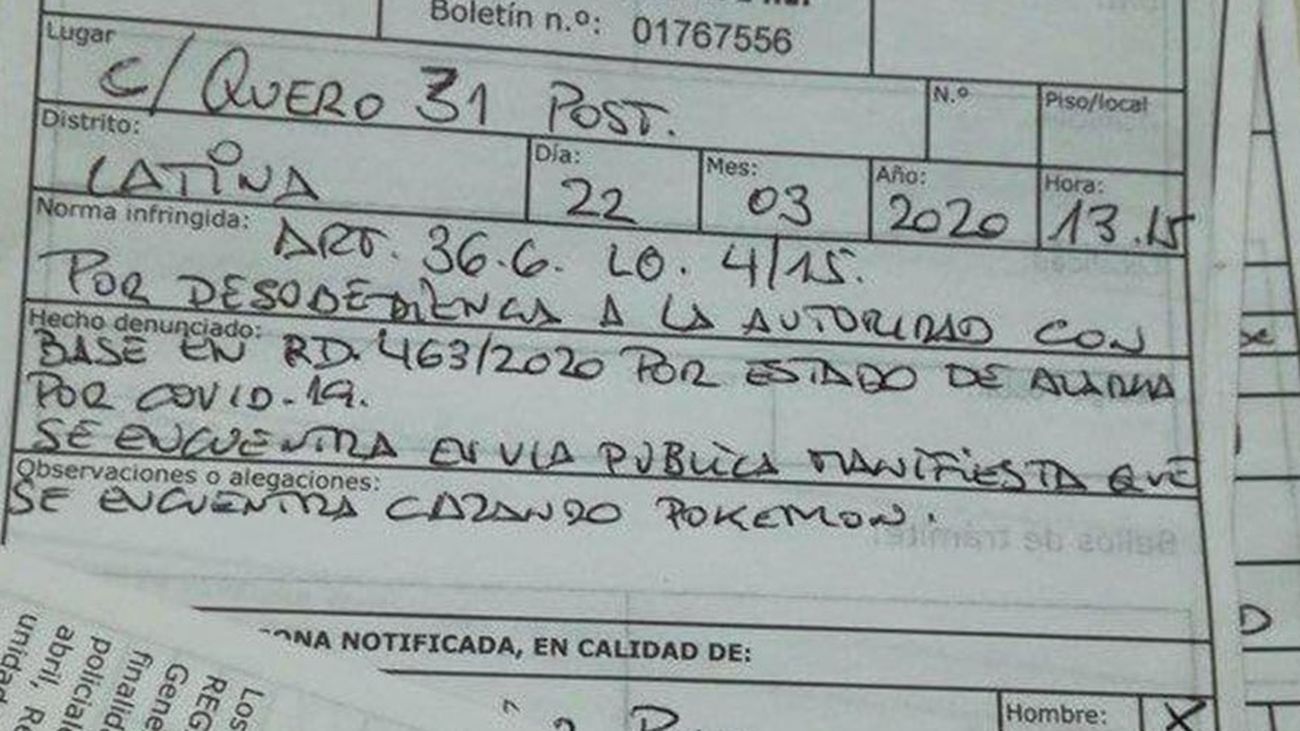 Boletín n.º: 01767556
Lugar
C/ QUERO 31 POST.
N.º
Piso/local
Distrito:
LATINA
Día:
22
Mes:
03
Año:
2020
Hora:
13.15
Norma infringida:
ART. 36.6. LO. 4/15.
POR DESOBEDIENCIA A LA AUTORIDAD CON
Hecho denunciado:
BASE EN RD. 463/2020 POR ESTADO DE ALARMA
POR COVID-19.
SE ENCUENTRA EN VIA PUBLICA MANIFIESTA QUE
Observaciones o alegaciones:
SE ENCUENTRA CAZANDO POKEMON.
Sellos de trámite:
NOTIFICADA, EN CALIDAD DE:
Hombre:
X
Los
REG
Gene
finalid
policiale
abril, Re
unidad